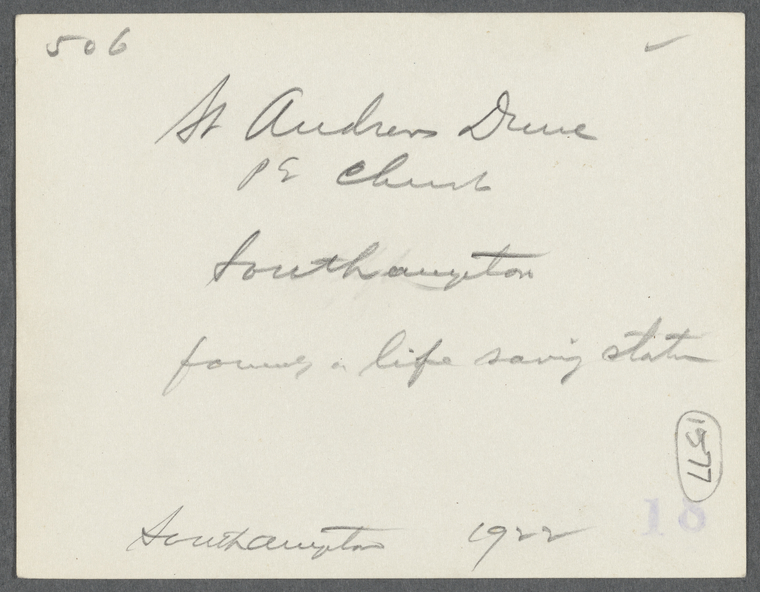 506 ✓
St Andrews Dune
P E Church
Southampton
formerly a life saving station
1577
18
Southampton 1922